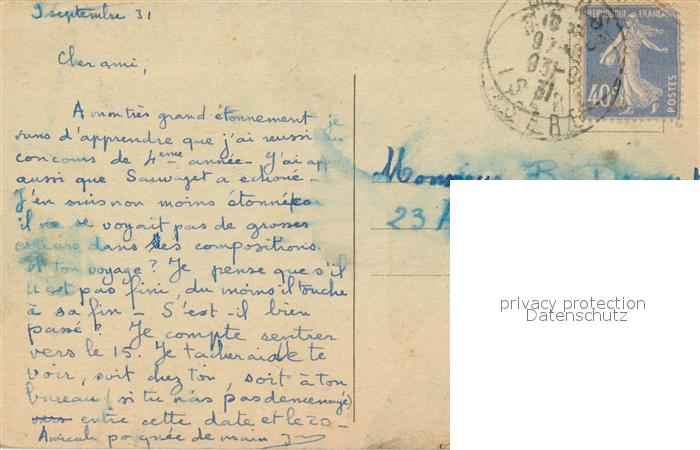 9 septembre 31
Cher ami,
A mon très grand étonnement je
viens d'apprendre que j'ai reussi au
concours de 4ème année - J'ai app
aussi que Sauvaget a échoué -
J'en suis non moins étonné car
il ne se voyait pas de grosses
erreurs dans les compositions.
Et ton voyage ? Je pense que s'il
n'est pas fini, du moins il touche
à sa fin - S'est-il bien
passé ? Je compte rentrer
vers le 15. Je tacherai de te
voir, soit chez toi, soit à ton
bureau (si tu n'as pas demenagé)
vers entre cette date et le 20 -
Amicale poignée de main
REPUBLIQUE FRANÇAISE
40c
POSTES
ISÈRE
Monsieur R.
23
privacy protection
Datenschutz